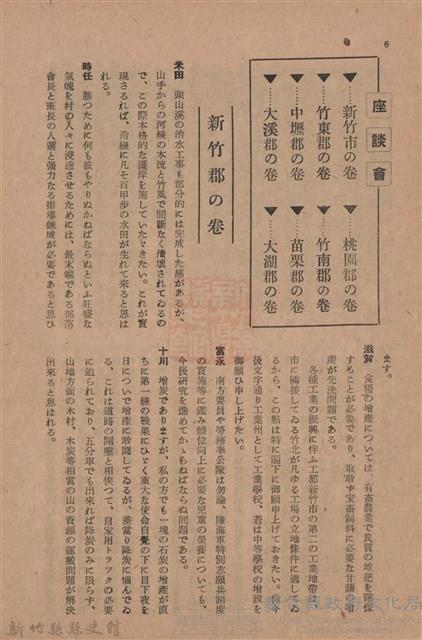 6
座談會
▼……新竹市の卷
▼……竹東郡の卷
▼……中壢郡の卷
▼……大溪郡の卷
▼……桃園郡の卷
▼……竹南郡の卷
▼……苗栗郡の卷
▼……大湖郡の卷
新竹郡の卷
米田 頭山溪の治水工事も部分的には完成した感があるが、
山手からの河線の本流と竹風で間斷なく潰壞されてゐるの
で、この際本格的な護岸を施していたゞきたい。これが實
現さるれば、沿線に凡そ百甲步の水田が生れて來ると思は
れる。
時任 勝つために何も彼もやりぬかねばならぬといふ旺盛な
氣魄を村の人々に浸透させるためには、最末端である部落
會長と班長の人選と强力なる指導鍊成が必要であると思ひ
ます。
滋賀 食糧の增產については、有畜農業で良質の堆肥を確保
することが必要であり、取敢ず家畜飼料に必要な甘藷の增
產が先決問題である。
各種工業の振興に伴ふ工都新竹市の第二の工業地帶は
市に隣接してゐる竹北が凡ゆる工場の立地條件に適してゐ
るから、この點は特に閣下に御願申上げておきたい。
後文字通り工業州として工業學校、若は中等學校の增設を
御願ひ申し上げたい。
富永 南方要員や勞務奉公隊は勿論、陸海軍特別志願兵制度
の實施等に鑑み體位向上に必要な兒童の榮養についても、
今後研究を進めてかゝらねばならぬ問題である。
十川 增炭でありますが、私の方でも一塊の石炭の增產が直
ちに第一線の戰果にひゞく重大な使命自覺の下に目下夜を
日についで增產に敢鬪してゐるが、蕃當り降炭に惱んでゐ
る、これは道路の開鑿と相俟つて、自家用トラックの必要
に迫られており、五分車でも出來れば降炭のみに限らず、
山地方面の木材、木炭等相當の山の資源の運搬問題が解決
出來ると思はれる。
新竹縣縣史館
新竹縣政府文化局